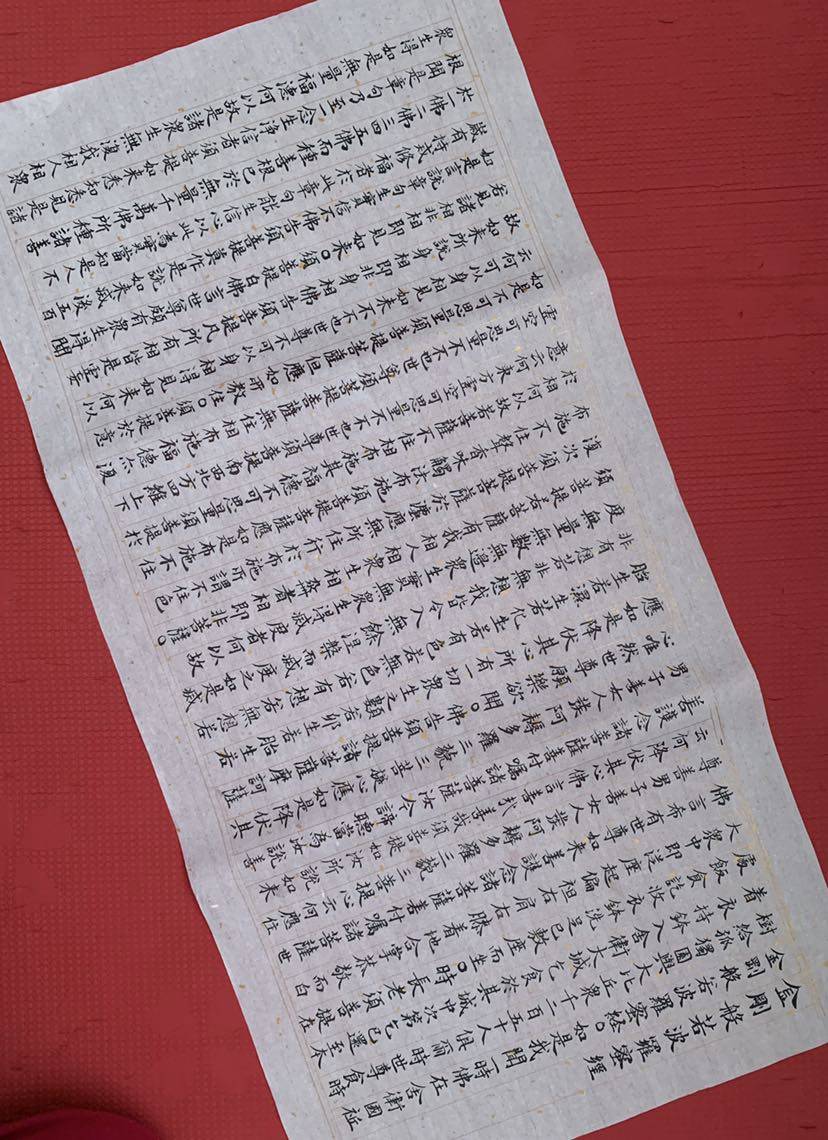 金剛般若波羅蜜經
金剛般若波羅蜜經。如是我聞一時佛在舍衛國祇
樹給孤獨園與大比丘眾千二百五十人俱爾時世尊食時
着衣持鉢入舍衛大城乞食於其城中次第乞已還至本
處飯食訖收衣鉢洗足已敷座而坐。時長老須菩提在
大眾中即從座起偏袒右肩右膝着地合掌恭敬而白
佛言希有世尊如來善護念諸菩薩善付囑諸菩薩世
尊善男子善女人發阿耨多羅三藐三菩提心云何應住
云何降伏其心佛言善哉善哉須菩提如汝所說如來
善護念諸菩薩善付囑諸菩薩汝今諦聽當為汝說善
男子善女人發阿耨多羅三藐三菩提心應如是降伏其
心唯然世尊願樂欲聞。佛告須菩提諸菩薩摩訶薩
應如是降伏其心所有一切眾生之類若卵生若胎生若
胎生若濕生若化生若有色若無色若有想若無想若
非有想若非無想我皆令入無餘涅槃而滅度之如是滅
度無量無數無邊眾生實無眾生得滅度者何以故
須菩提若菩薩有我相人相眾生相壽者相即非菩薩。
復次須菩提菩薩於法應無所住行於布施所謂不住色
布施不住聲香味觸法布施須菩提菩薩應如是布施不住
於相何以故若菩薩不住相布施其福德不可思量須菩提於
意云何東方虛空可思量不不也世尊須菩提南西北方四維上下
虛空可思量不不也世尊須菩提菩薩無住相布施福德亦復
如是不可思量須菩提菩薩但應如所教住。須菩提於意
云何可以身相見如來不不也世尊不可以身相得見如來何以
故如來所說身相即非身相佛告須菩提凡所有相皆是虛妄
若見諸相非相即見如來。須菩提白佛言世尊頗有眾生得聞
如是言說章句生實信不佛告須菩提莫作是說如來滅後五百
歲有持戒修福者於此章句能生信心以此為實當知是人不
於一佛二佛三四五佛而種善根已於無量千萬佛所種諸善
根聞是章句乃至一念生淨信者須菩提如來悉知悉見是諸
眾生得如是無量福德何以故是諸眾生無復我相人相眾